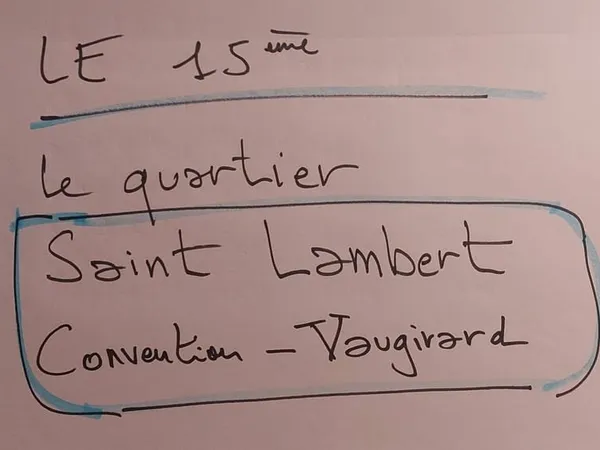 LE 15ème
le quartier
Saint Lambert
Convention - Vaugirard